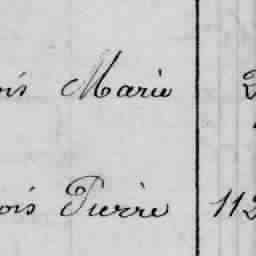 ois Marie 2
ois Pierre 112